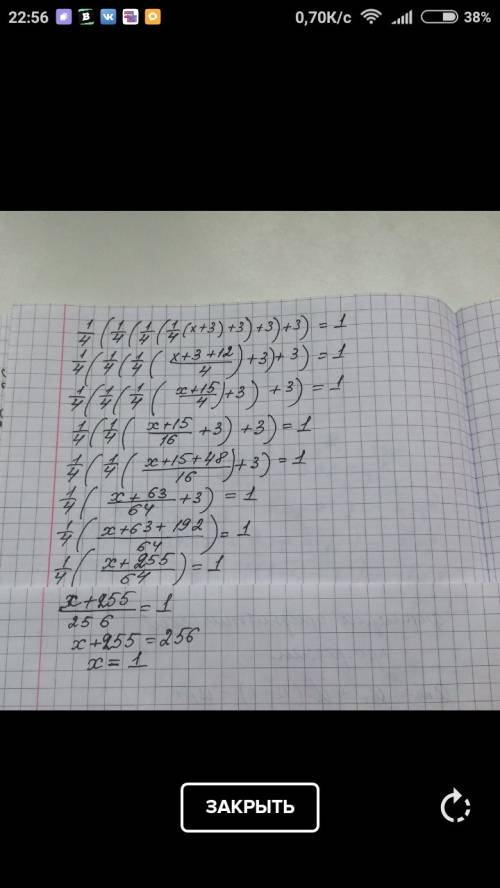 22:56 0,70K/c 38%
1/4 (1/4 (1/4 (1/4 (x+3) +3) +3) +3) = 1
1/4 (1/4 (1/4 ( (x+3+12)/4 ) +3) +3) = 1
1/4 (1/4 (1/4 ( (x+15)/4 ) +3) +3) = 1
1/4 (1/4 ( (x+15)/16 +3) +3) = 1
1/4 (1/4 ( (x+15+48)/16 ) +3) = 1
1/4 ( (x+63)/64 +3) = 1
1/4 ( (x+63+192)/64 ) = 1
1/4 ( (x+255)/64 ) = 1
(x+255)/256 = 1
x+255 = 256
x = 1
ЗАКРЫТЬ